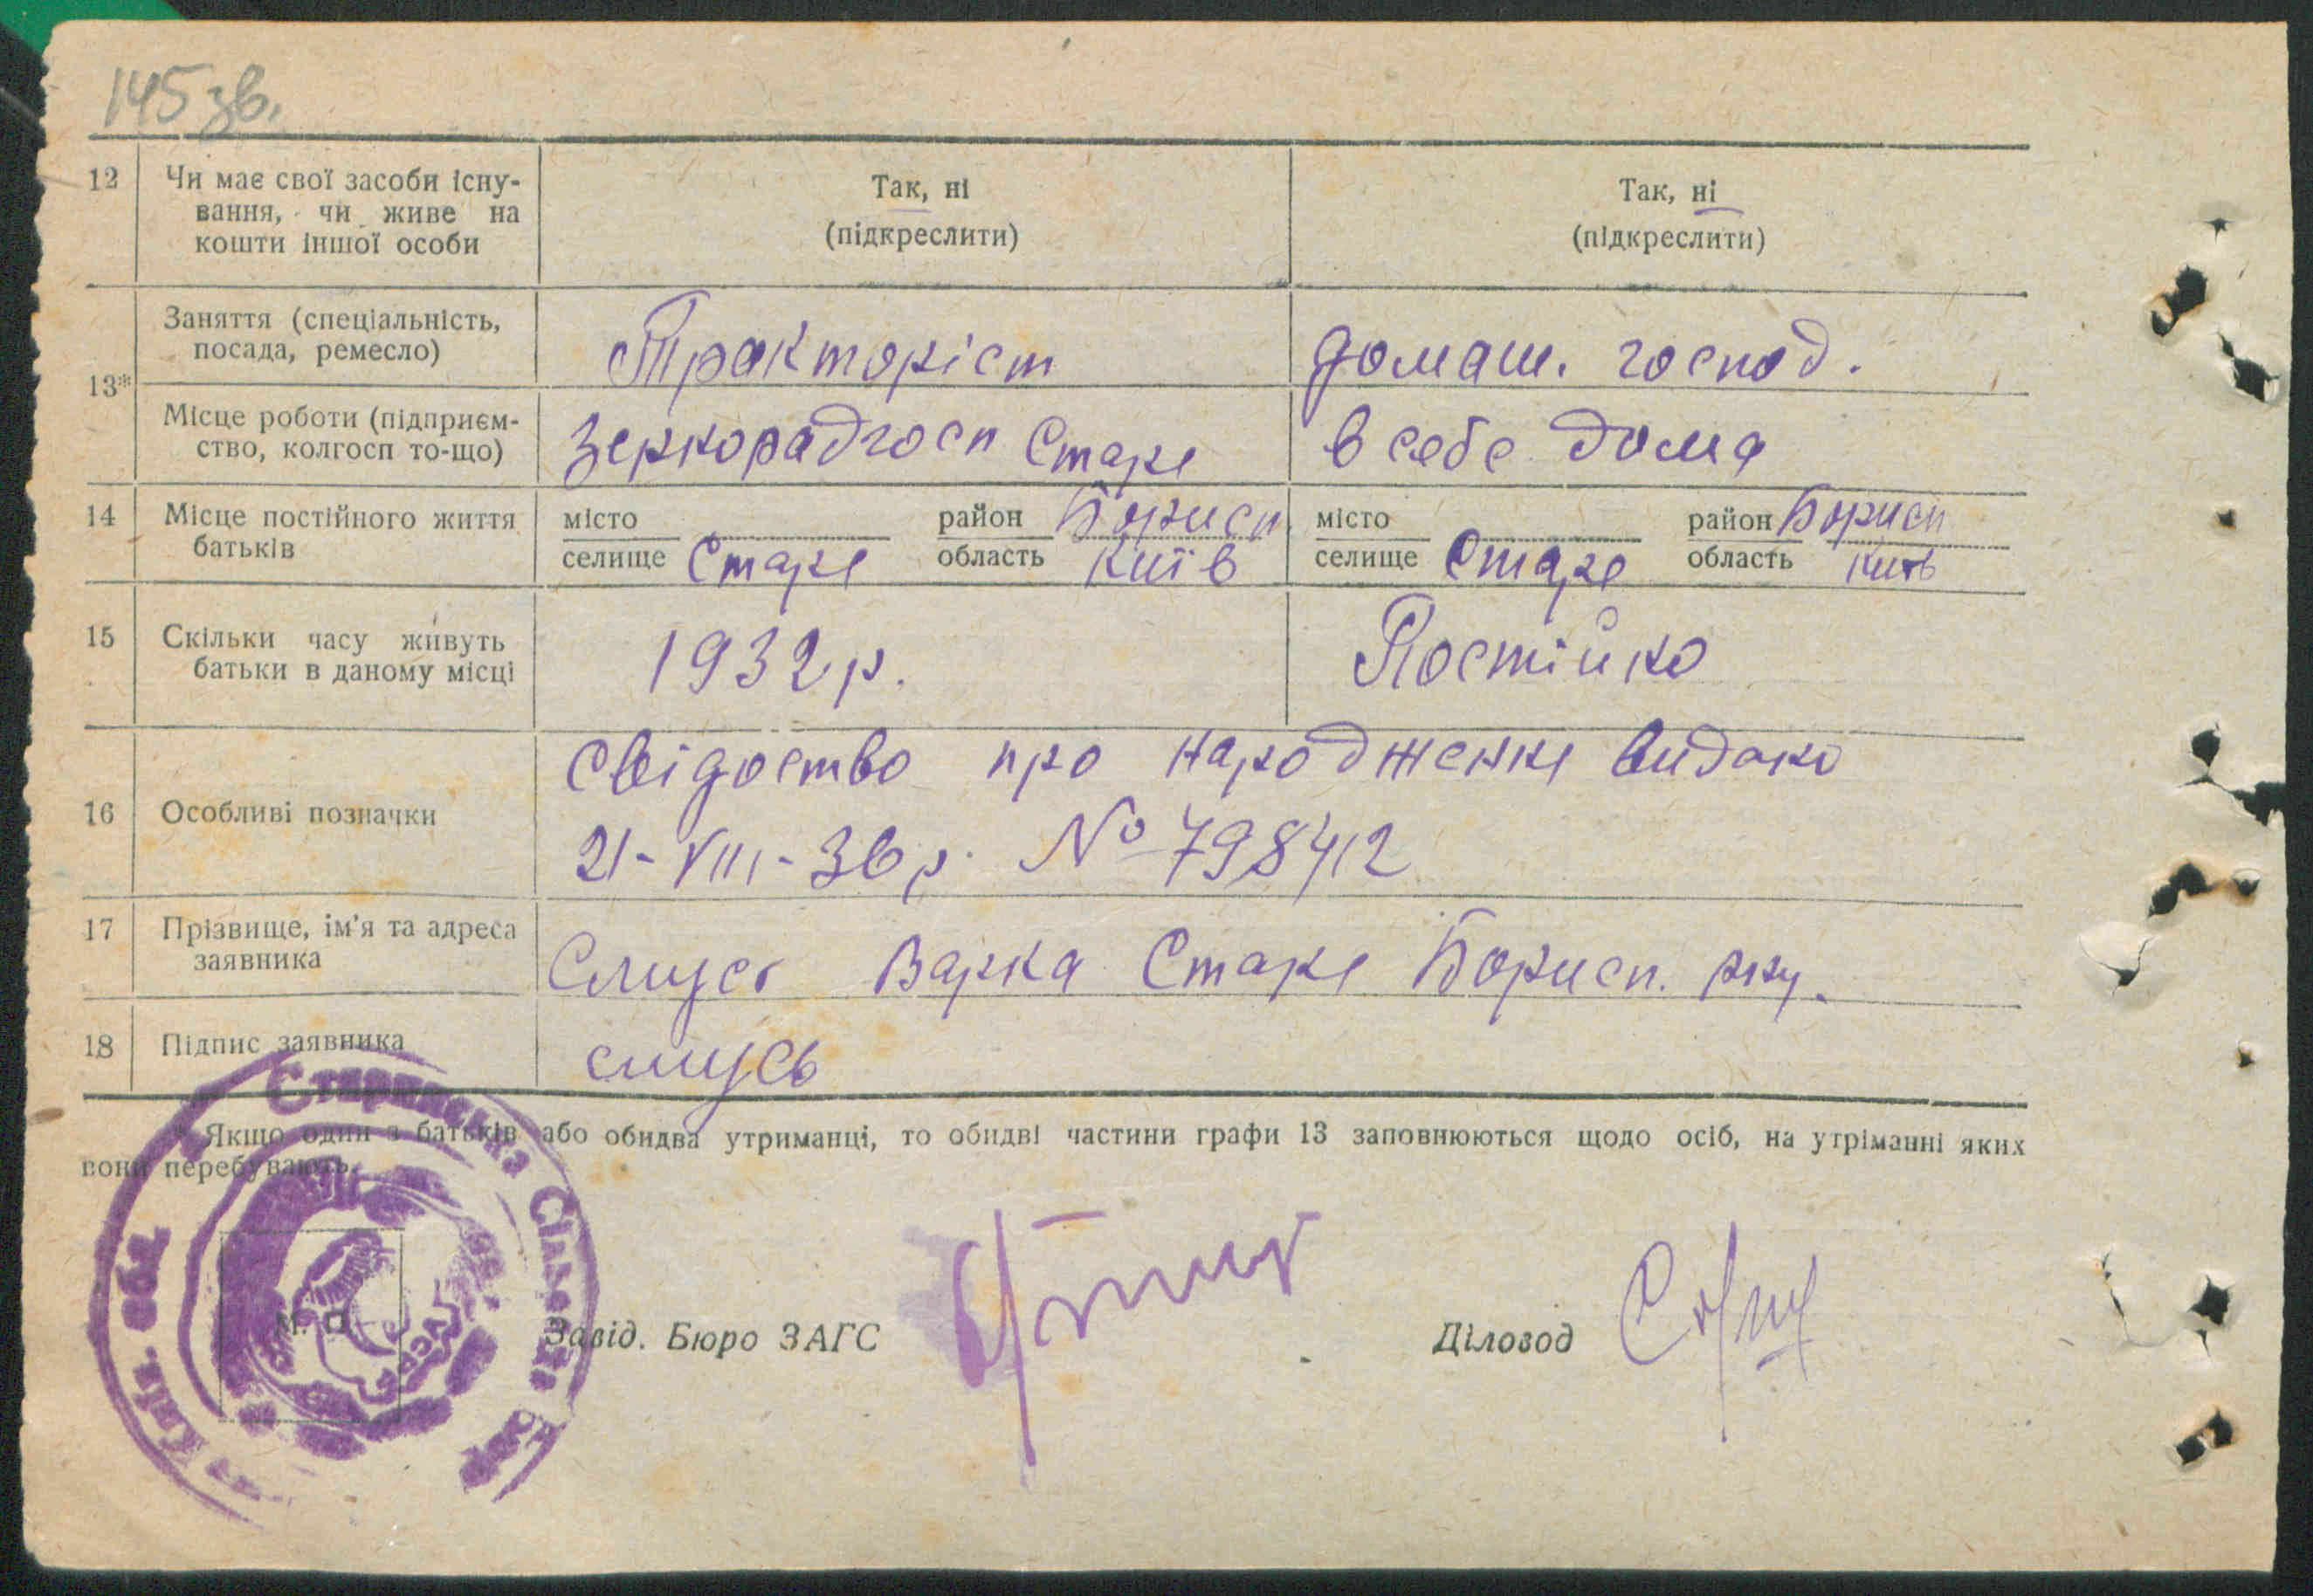 145 зв.
12 Чи має свої засоби існу-
вання, чи живе на
кошти іншої особи
Так, ні
(підкреслити)
Так, ні
(підкреслити)
13*
Заняття (спеціальність,
посада, ремесло)
Тракторіст
домаш. господ.
Місце роботи (підприєм-
ство, колгосп то-що)
Зернорадгосп Старе
в себе дома
14 Місце постійного життя
батьків
місто
селище Старе
район Борисп
область Київ
місто
селище Старе
район Борисп
область Київ
15 Скільки часу живуть
батьки в даному місці
1932 р.
Постійно
16 Особливі позначки
свідоство про народження видано
21-VIII-36 р. № 798412
17 Прізвище, ім'я та адреса
заявника
Слусь Варка Старе Борисп. р-ну.
18 Підпис заявника
слусь
* Якщо один з батьків або обидва утриманці, то обидві частини графи 13 заповнюються щодо осіб, на утріманні яких
вони перебувають.
Старинська Сільська
Київ. обл.
УСРР
М. П.
Завід. Бюро ЗАГС
Діловод